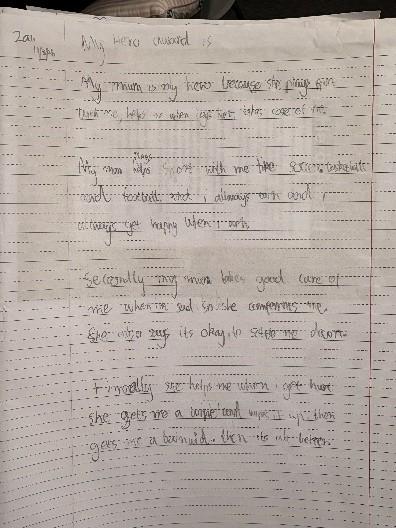 My Hero award is
My mum is my hero because she plays fun
with me, helps me when I get hurt, takes care of me.
plays
My mum helps Sport with me like soccer, basketball
and football and i always win and i
always get happy when I win.
Secondly my mum takes good care of
me when im sad so she comfortes me.
She also says its okay, to me down.
she helps me when i get hurt
she gets me a wipe and wipes it up then
gets me a banaid. then its all better.